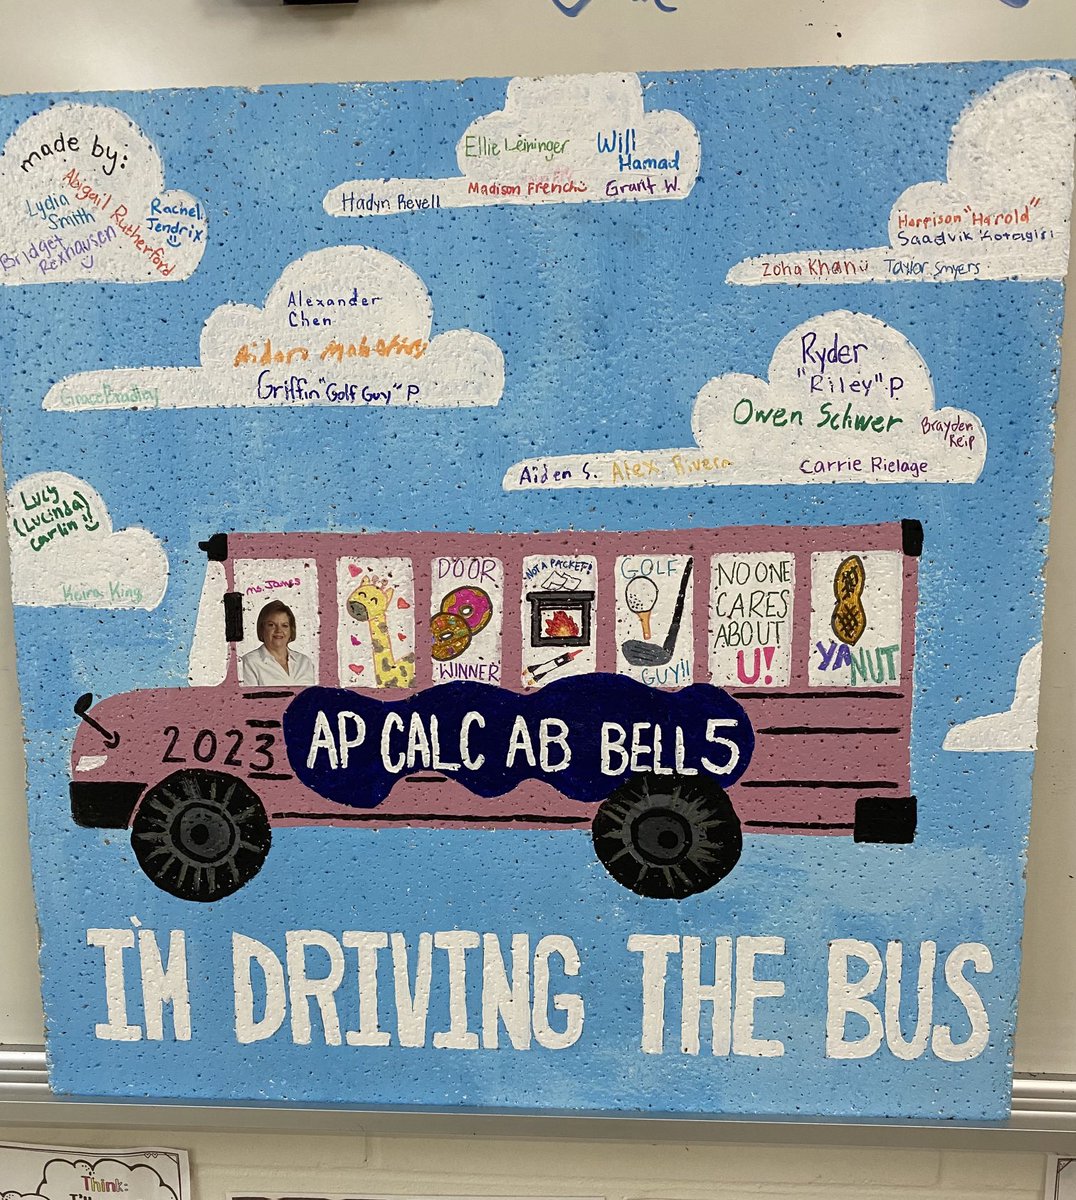 made by:
Abigail Rutherford
Lydia
Smith
Rachel
Jendrix
Bridget
Rexhausen
Ellie Leininger
Will
Hamad
Madison French
Grant W.
Hadyn Revell
Harrison "Harold"
Saadvik Kotagiri
Zoha Khan
Taylor Smyers
Alexander
Chen
Aidan
Griffin "Golf Guy" P
Grace Bradley
Ryder
"Riley" P
Owen Schwer
Brayden
Reip
Aiden S.
Alex Rivera
Carrie Rielage
Lucy
(Lucinda)
Carlin
Keira King
Ms. James
DOOR
WINNER
NOT A PACKET!
GOLF
GUY!!
NO ONE
CARES
ABOUT
U!
YA NUT
2023
AP CALC AB BELL 5
I'M DRIVING THE BUS
Think: